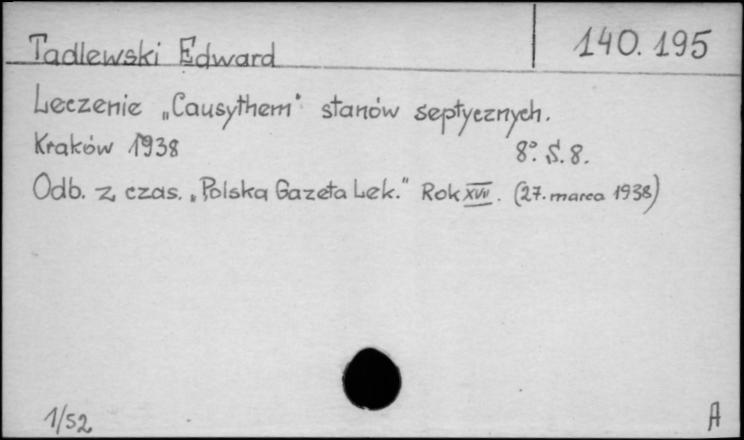 Tadlewski Edward 140.195
Leczenie „Causythem" stanów septycznych.
Kraków 1938 8° S. 8.
Odb. z czas. „Polska Gazeta Lek." Rok XVII. (27. marca 1938)
1/52 A